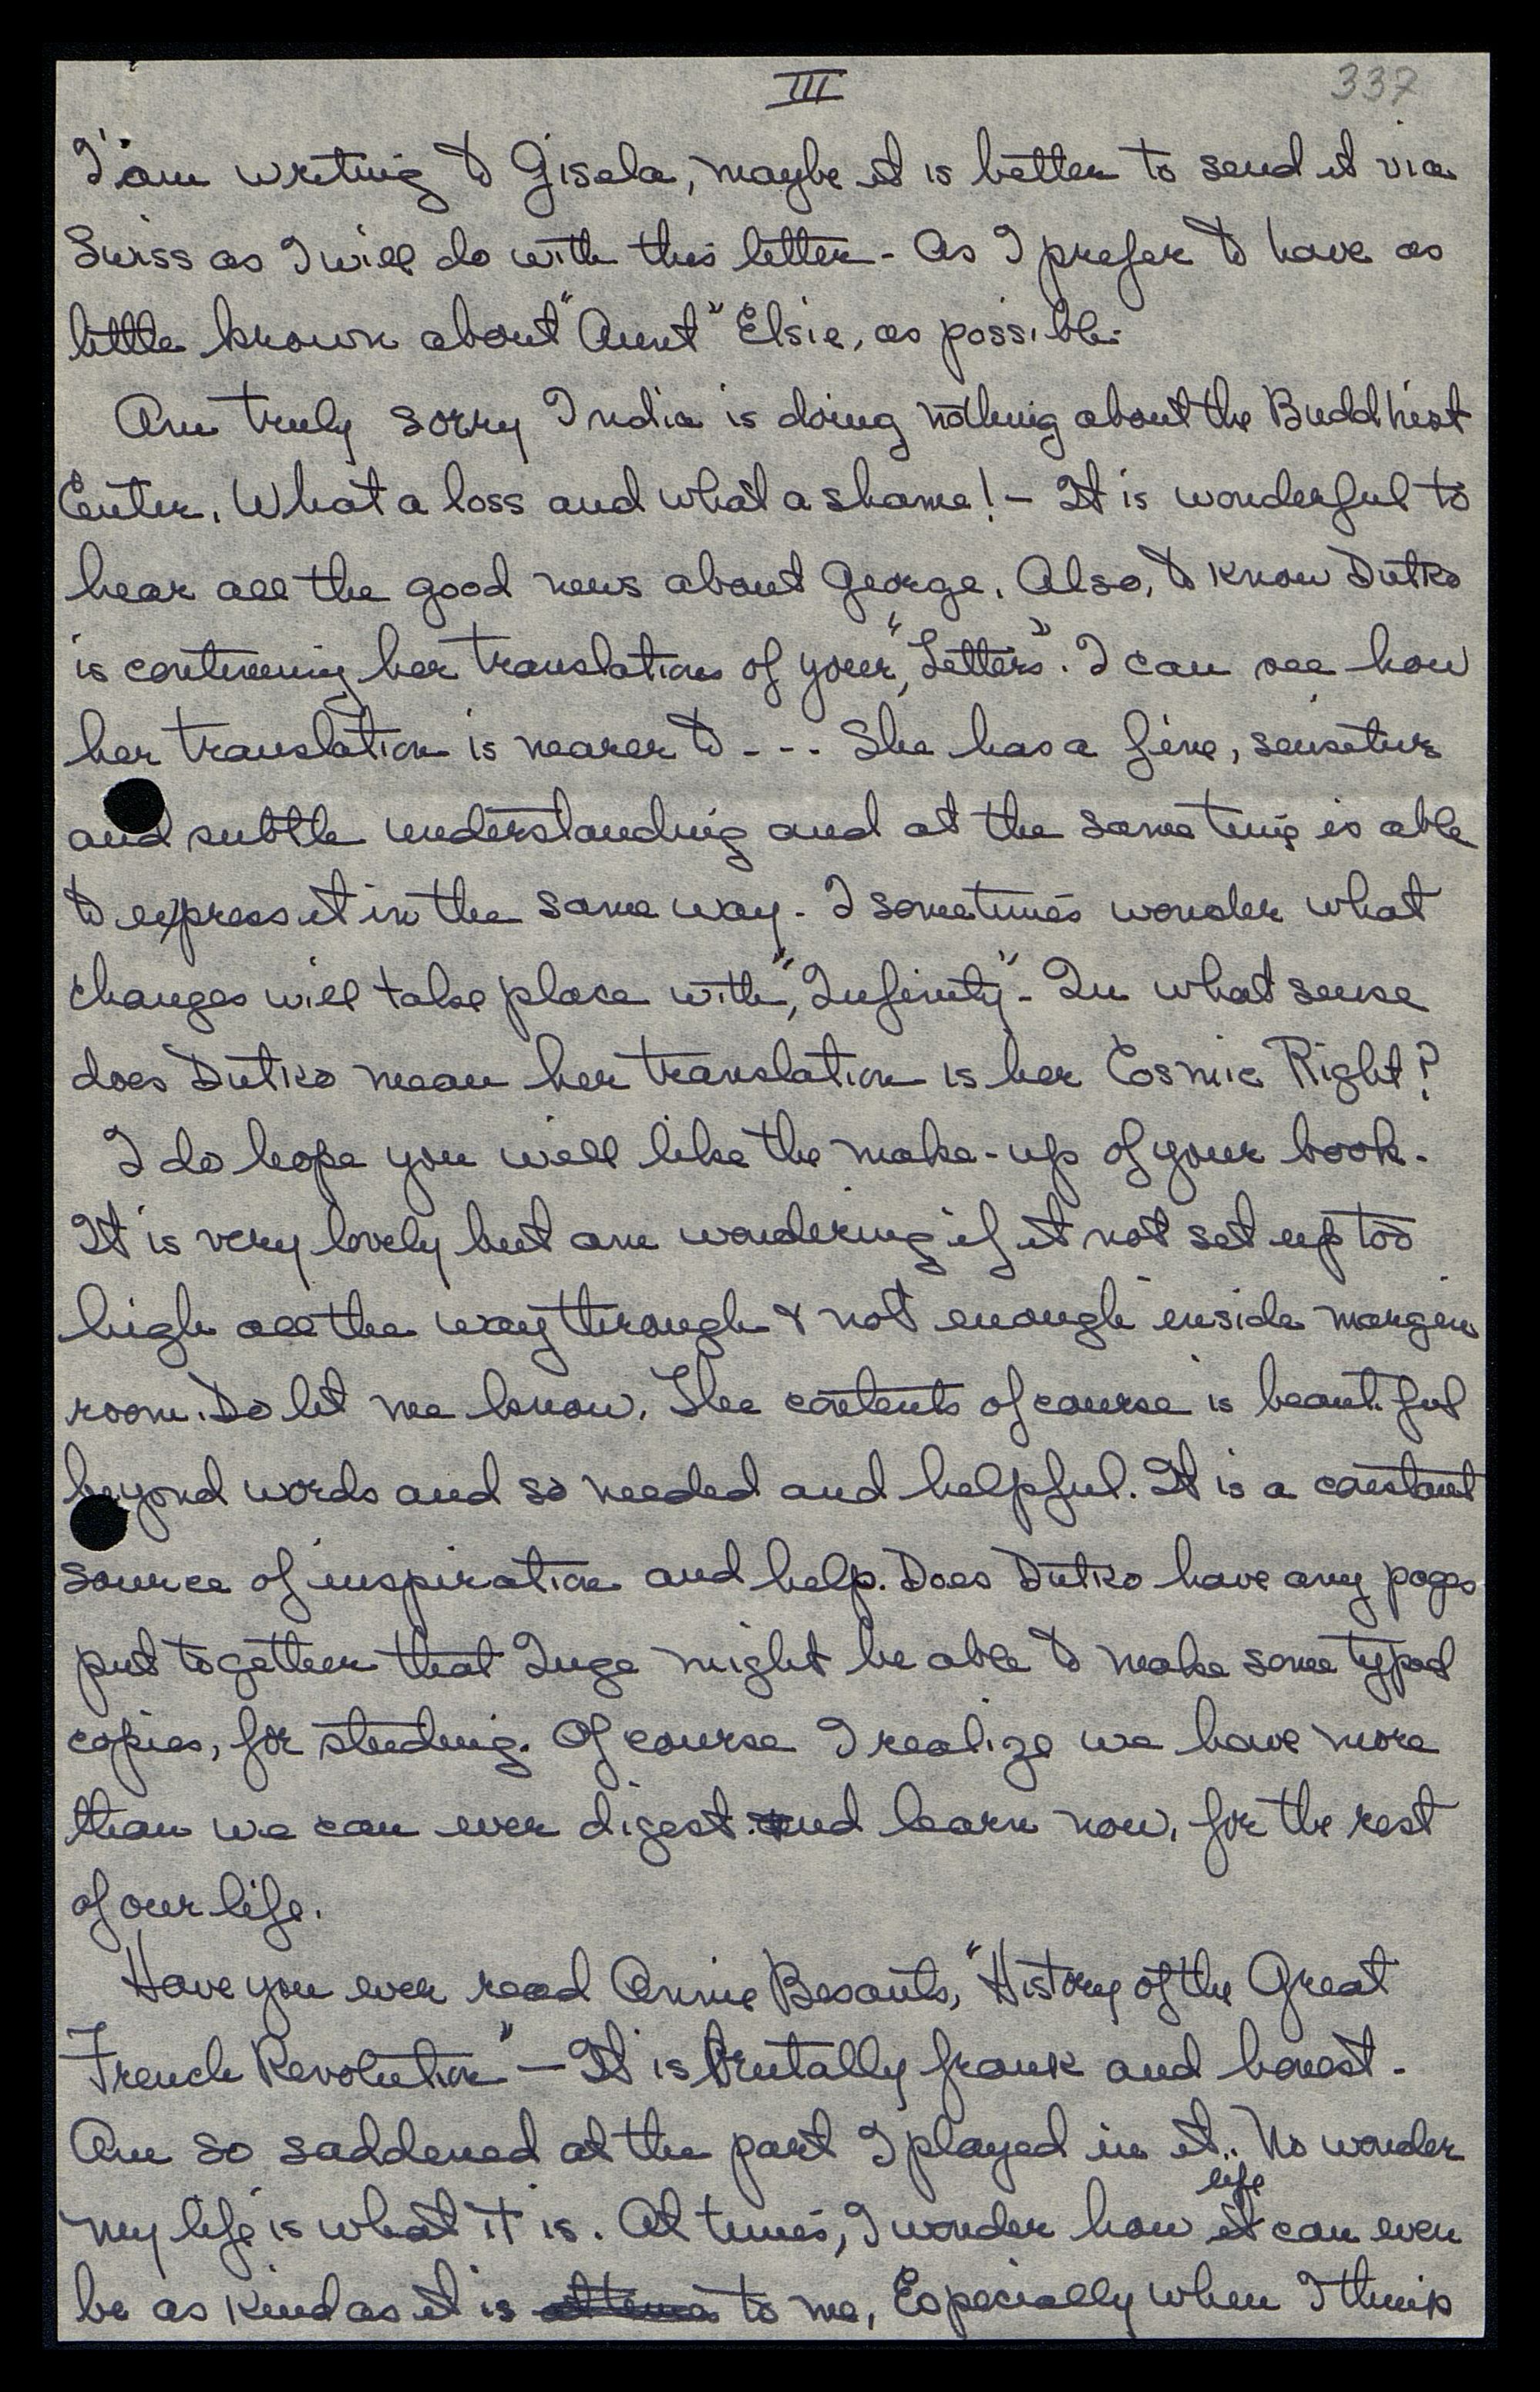 III
337
I'am writing to Gisela, maybe it is better to send it via
Swiss as I will do with this letter - As I prefer to have as
little known about "Aunt" Elsie, as possible.
Am truly sorry India is doing nothing about the Buddhist
Center. What a loss and what a shame! - It is wonderful to
hear all the good news about George. Also, to know Dutko
is continuing her translations of your, "Letters". I can see how
her translation is nearer to - - - She has a fine, sensitive
and subtle understanding and at the same time is able
to express it in the same way - I sometimes wonder what
changes will take place with, "Infinity" - In what sense
does Dutko mean her translation is her Cosmic Right?
I do hope you will like the make-up of your book -
It is very lovely but am wondering if it not set up too
high all the way through & not enough inside margin
room. Do let me know. The contents of course is beautiful
beyond words and so needed and helpful. It is a constant
source of inspiration and help. Does Dutko have any pages
put together that Inge might be able to make some typed
copies, for studing. Of course I realize we have more
than we can ever digest and learn now, for the rest
of our life.
Have you ever read Annie Besants, "History of the Great
French Revolution" - It is brutally frank and honest -
Am so saddened at the part I played in it.. No wonder
my life is what it is. At times, I wonder how life it can even
be as kind as it is to me, Especially when I think